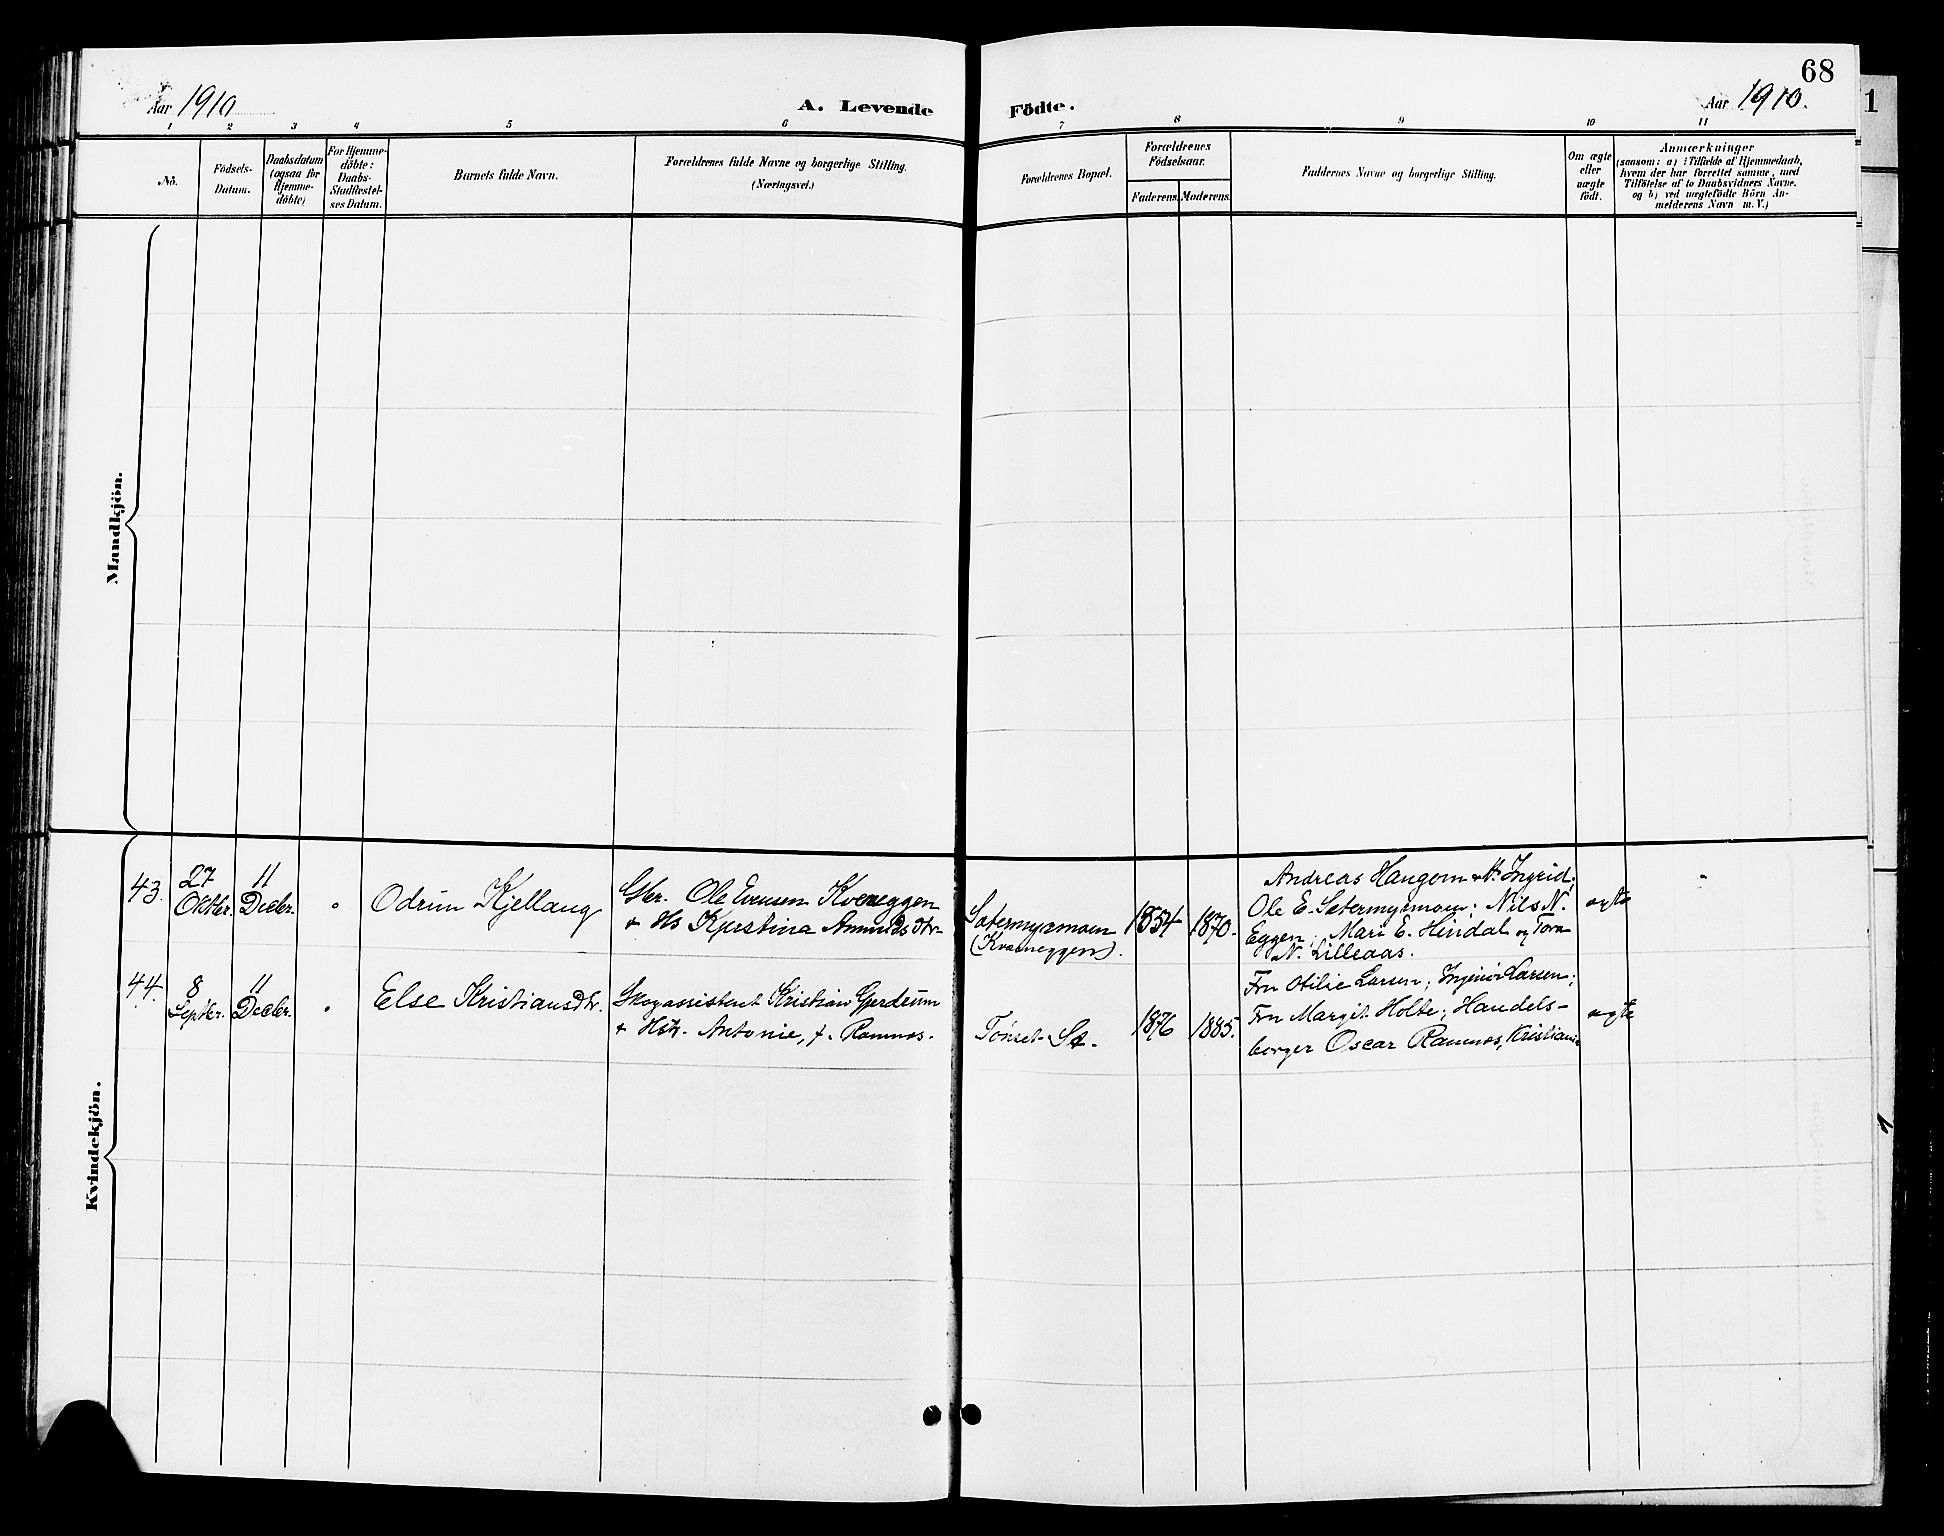 68
Aar 1910
A. Levende
Födte.
Aar 1910.
1
1 2 3 4 5 6
7 8 9 10 11
No.
Födsels-
Datum.
Daabsdatum
(ogsaa for
Hjemme-
döbte)
For Hjemme-
döbte:
Daabs-
Stadfæstel-
ses Datum.
Barnets fulde Navn.
Forældrenes fulde Navne og borgerlige Stilling.
(Næringsvei.)
Forældrenes Bopæl.
Forældrenes
Födselsaar.
Faderens.
Moderens.
Faddernes Navne og borgerlige Stilling.
Om ægte
eller
uægte
født.
Anmærkninger
(saasom: a) i Tilfælde af Hjemmedaab,
hvem der har forrettet samme, med
Tilföielse af to Daabsvidners Navne.
og b) ved uægtefödte Börn An-
melderens Navn m. V.)
Mandkjön.
Kvindekjön.
43.
27
Oktbr.
11
Decbr.
"
Odrun Kjellaug
Gbr. Ole Evensen Kveneggen
+ Hs Kjerstina Amundsdtr
Sætermyrmoen
(Kvæneggen).
1854
1870.
Andreas Haugom + H. Ingrid;
Ole E. Sætermyrmoen; Nils N.
Eggen; Mari E. Hindal og Tora
N. Lilleaas.
ægte
"
44.
8
Septbr.
11
Decbr.
"
Else Kristiansdtr.
Skogassistent Kristian Gjerdrum
+ Hstr. Antonie, f. Ramnæs.
Tönset St.
1876
1885.
Fru Otilie Larsen; Ingeniör Larsen;
Fru Margit Holte; Handels-
borger Oscar Ramnæs, Kristiania
ægte